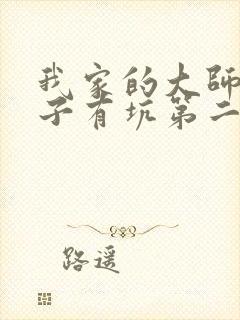 我家的大師
子有坑第二
路遥